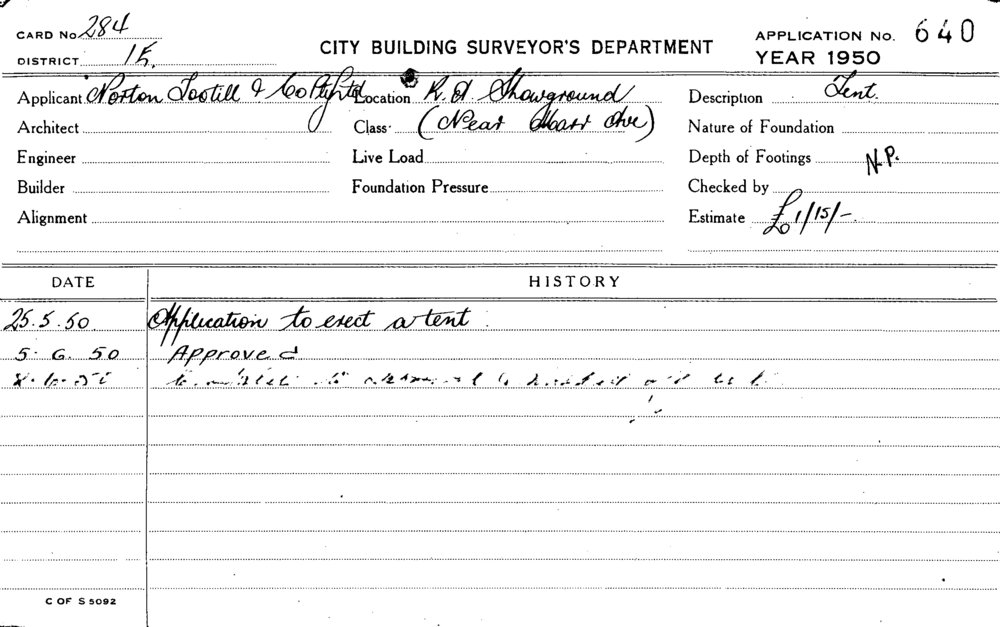 CARD No 284
DISTRICT 1E.
CITY BUILDING SURVEYOR'S DEPARTMENT
APPLICATION No. 640
YEAR 1950
Applicant Norton Tootill & Co Pty Ltd
Location R.A. Showground
Description Tent.
Architect
Class (Near Ave)
Nature of Foundation
Engineer
Live Load
Depth of Footings N.P.
Builder
Foundation Pressure
Checked by
Alignment
Estimate £1/15/-.
DATE
HISTORY
25.5.50 Application to erect a tent
5. 6. 50 Approved
C OF S 5092